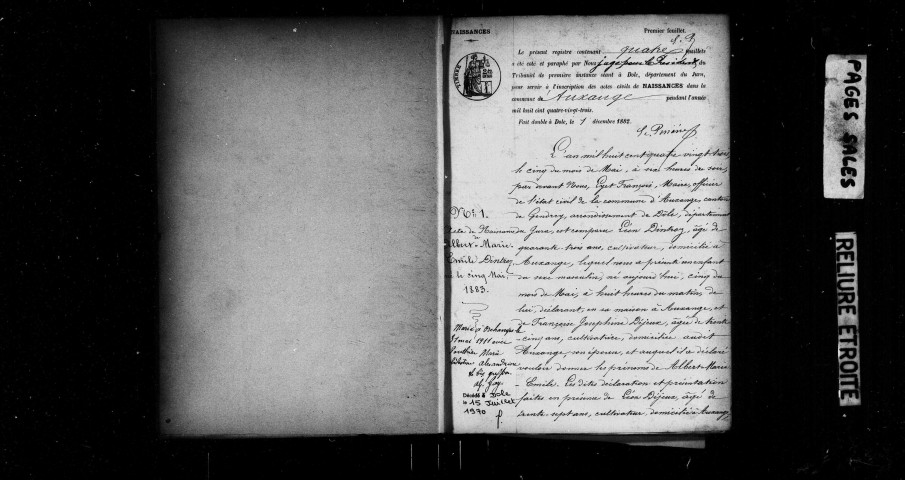 NAISSANCES
Premier feuillet.
Le présent registre contenant quatre feuillets
a été coté et paraphé par Nous juge pour le Président du
Tribunal de première instance séant à Dole, département du Jura,
pour servir à l'inscription des actes civils de NAISSANCES dans la
commune de Auxange pendant l'année
mil huit cent quatre-vingt-trois.
Fait double à Dole, le 7 décembre 1882.
TIMBRE
L'an mil huit cent quatre vingt trois
le cinq du mois de Mai, à six heures du soir,
par devant Nous, François, Maire, officier
de l'état civil de la commune d'Auxange, canton
de Gendrey, arrondissement de Dôle, département
du Jura, est comparu Léon Dintroz, âgé de
quarante trois ans, cultivateur, domicilié à
Auxange, lequel nous a présenté un enfant
du sexe masculin, né aujourd'hui, cinq du
mois de Mai, à huit heures du matin, de
lui, déclarant, en sa maison à Auxange, et
de Françoise Joséphine Déjeux, âgée de trente
-cinq ans, cultivatrice, domiciliée audit
Auxange, son épouse, et auquel il a déclaré
vouloir donner les prénoms de Albert-Marie
-Emile. Les dites déclaration et présentation
faites en présence de Léon Déjeux, âgé de
trente-sept ans, cultivateur, domicilié à Auxange,
Nº 1.
Acte de Naissance
de
Albert-Marie-
Emile Dintroz,
le cinq Mai,
1883.
Marié à
31 mai 1911 avec
Marie
Alexandrine
Décédé à Dole
le 15 Juillet
1970
PAGES SALES
RELIURE ETROITE